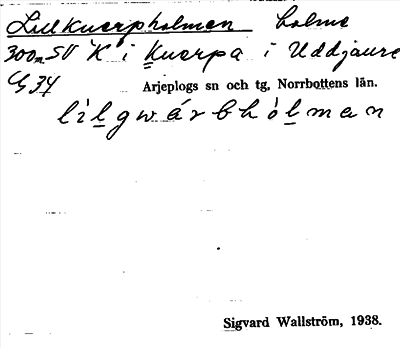 Lill Kuerpholmen holme
300m SV "K" i Kuerpa i Uddjaure
G 34 Arjeplogs sn och tg, Norrbottens län.
lìlgwárbhòlman
Sigvard Wallström, 1938.